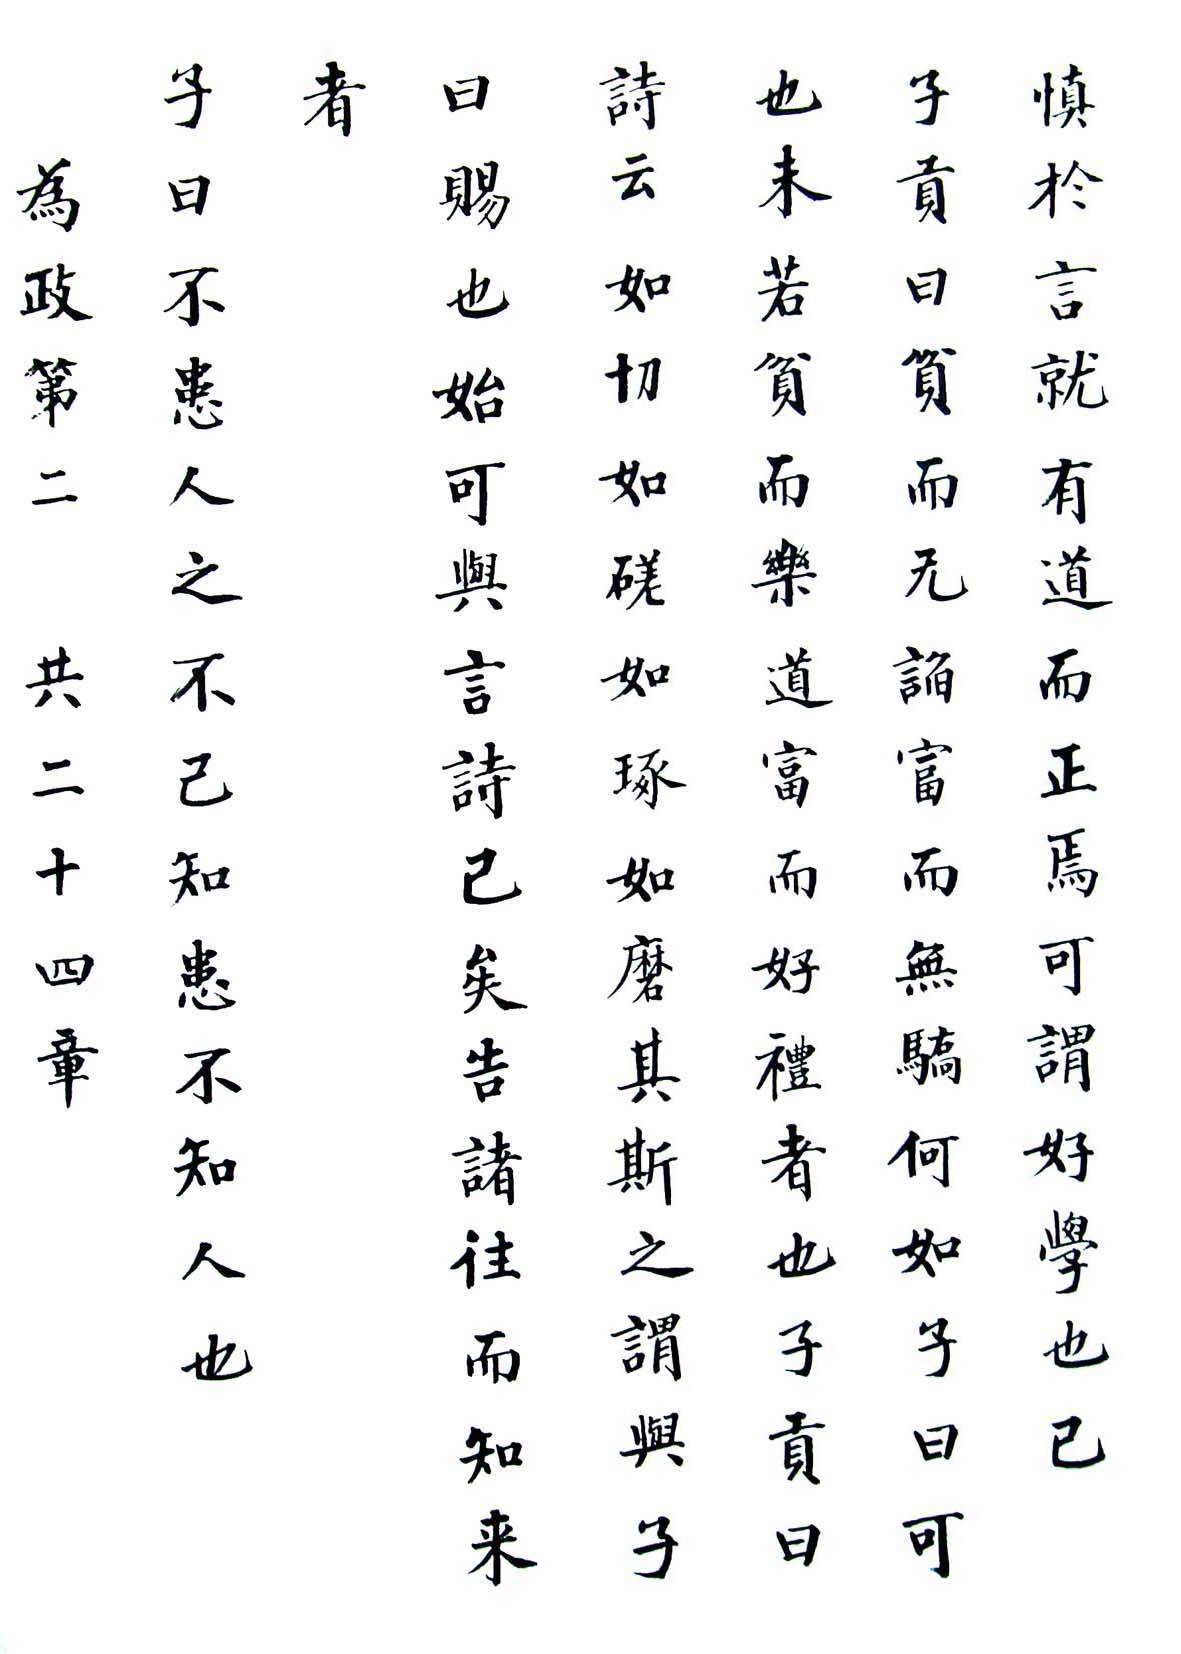 慎於言就有道而正焉可謂好學也已
子貢曰貧而无諂富而無驕何如子曰可
也未若貧而樂道富而好禮者也子貢曰
詩云如切如磋如琢如磨其斯之謂與子
曰賜也始可與言詩已矣告諸往而知来
者
子曰不患人之不己知患不知人也
為政第二 共二十四章